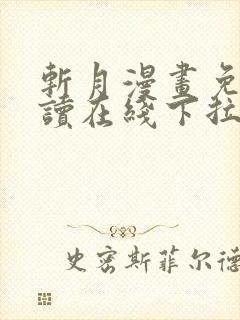 斬月漫畫免
讀在綫下拉
史密斯菲尔德